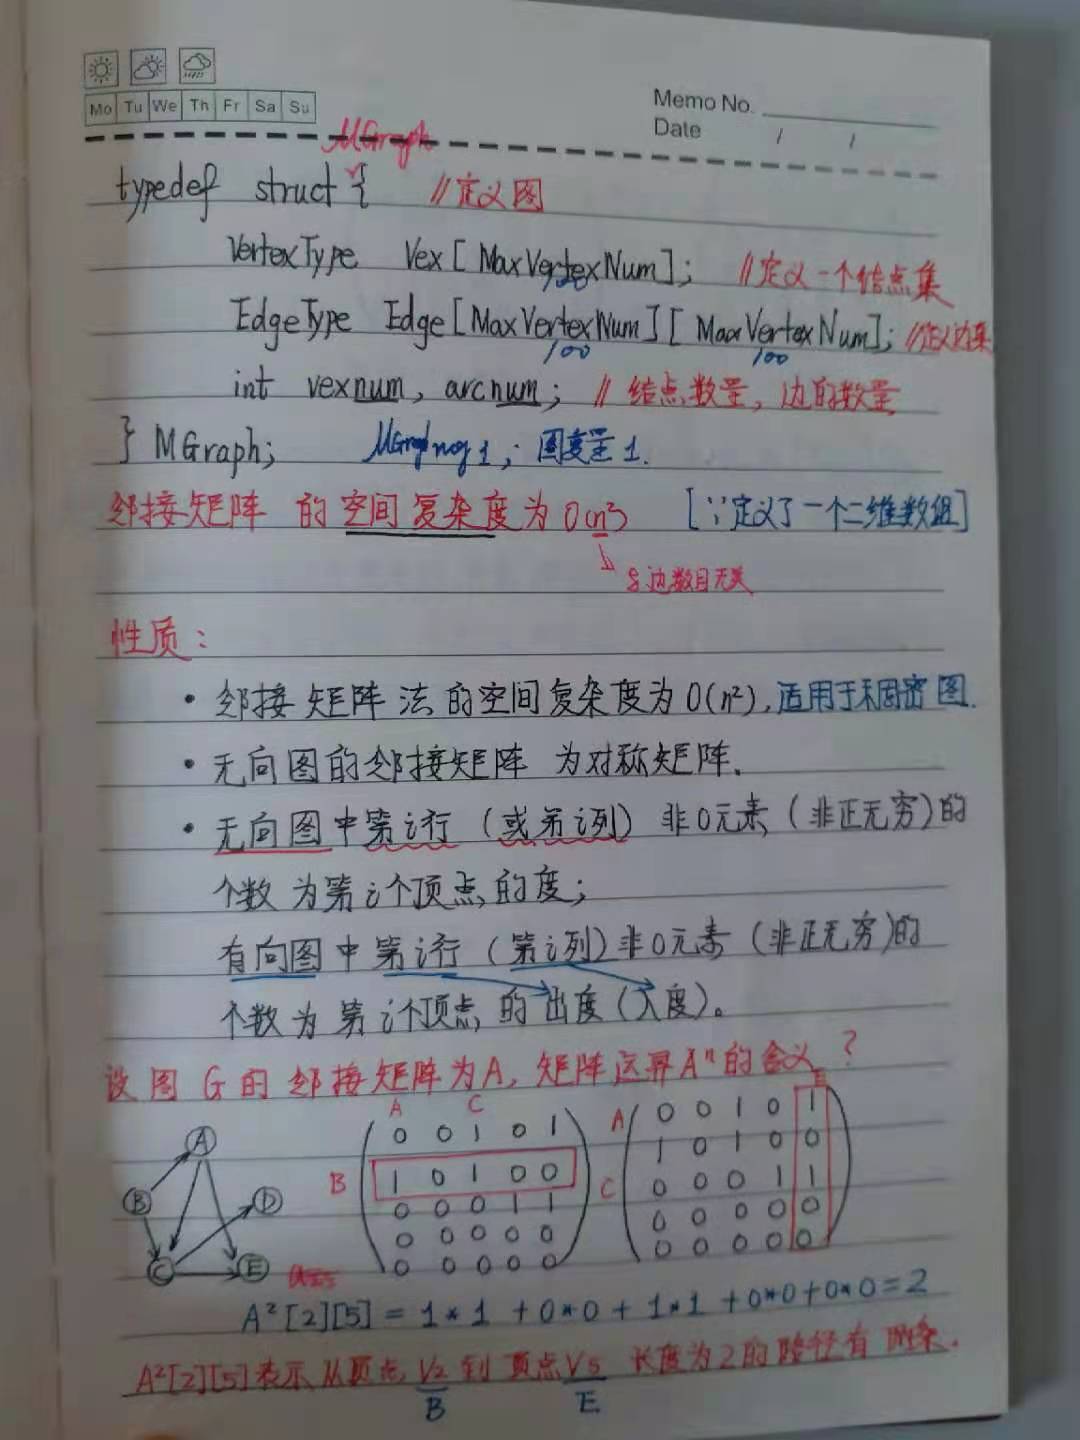 Mo Tu We Th Fr Sa Su
Memo No.
Date / /
MGraph
typedef struct { //定义图
VertexType Vex[MaxVertexNum]; //定义一个结点集
100
EdgeType Edge[MaxVertexNum][MaxVertexNum]; //定义边集
100 100
int vexnum, arcnum; //结点数量,边的数量
} MGraph; 图变量1.
邻接矩阵 的空间复杂度为O(n²) [∵定义了一个二维数组]
与边数目无关
性质:
·邻接矩阵法的空间复杂度为O(n²),适用于稠密图.
·无向图的邻接矩阵 为对称矩阵.
·无向图中第i行(或第i列)非0元素(非正无穷)的
个数为第i个顶点的度;
有向图中第i行(第i列)非0元素(非正无穷)的
个数为第i个顶点的出度(入度)。
设图G的邻接矩阵为A,矩阵运算Aⁿ的含义?
A C E
A B C D E
A 0 0 1 0 1
B 1 0 1 0 0
0 0 0 1 1
0 0 0 0 0
0 0 0 0 0
A 0 0 1 0 1
1 0 1 0 0
C 0 0 0 1 1
0 0 0 0 0
0 0 0 0 0
A²[2][5] = 1*1 + 0*0 + 1*1 + 0*0 + 0*0 = 2
A²[2][5]表示从顶点V2到顶点V5 长度为2的路径有两条.
B E